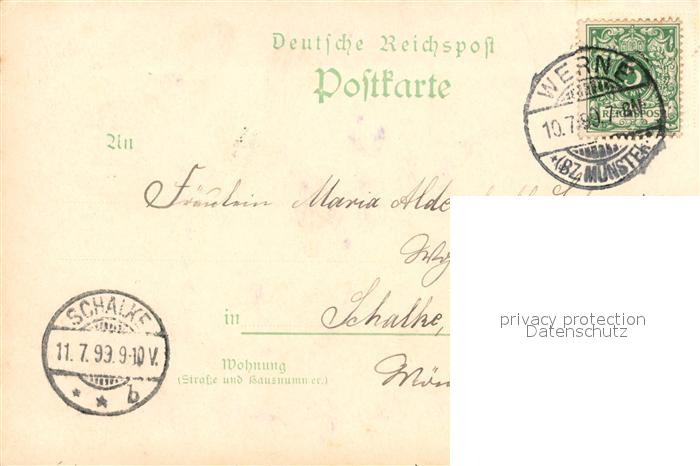 Deutsche Reichspost
Postkarte
5
REICHSPOST
WERNE
10.7.99.7-8N.
*(BZ. MÜNSTER)*
An
Fräulein Maria Alde
in Schalke,
privacy protection
Datenschutz
SCHALKE
11. 7. 99. 9-10 V.
* * b
Wohnung
(Straße und Hausnummer.)